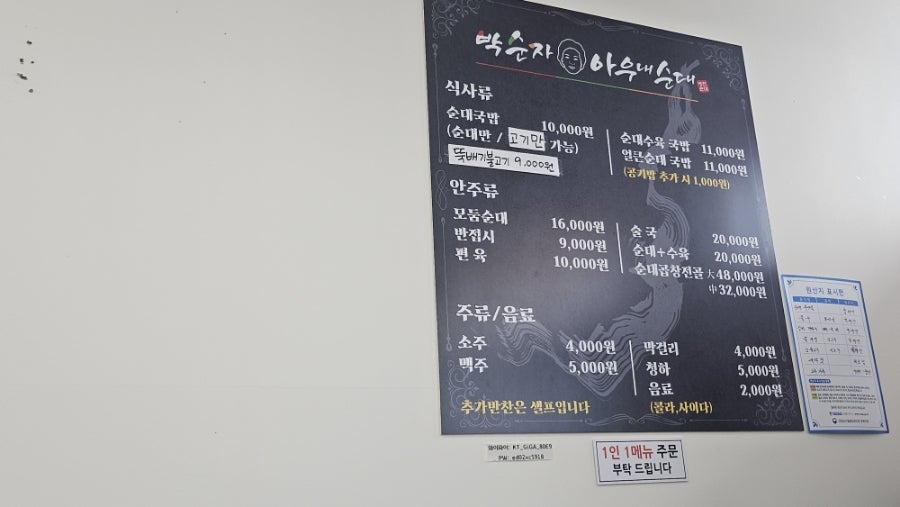 박순자 아우내순대
식사류
순대국밥 10,000원
(순대만 / 고기만 가능)
뚝배기불고기 9,000원
순대수육 국밥 11,000원
얼큰순대 국밥 11,000원
(공기밥 추가 시 1,000원)
안주류
모둠순대 16,000원
반접시 9,000원
편 육 10,000원
술 국 20,000원
순대+수육 20,000원
순대곱창전골 大 48,000원
中 32,000원
주류/음료
소주 4,000원
맥주 5,000원
막걸리 4,000원
청하 5,000원
음료 2,000원
(콜라,사이다)
추가반찬은 셀프입니다
원산지 표시판
와이파이: KT_GiGA_80E9
1인 1메뉴 주문
부탁 드립니다